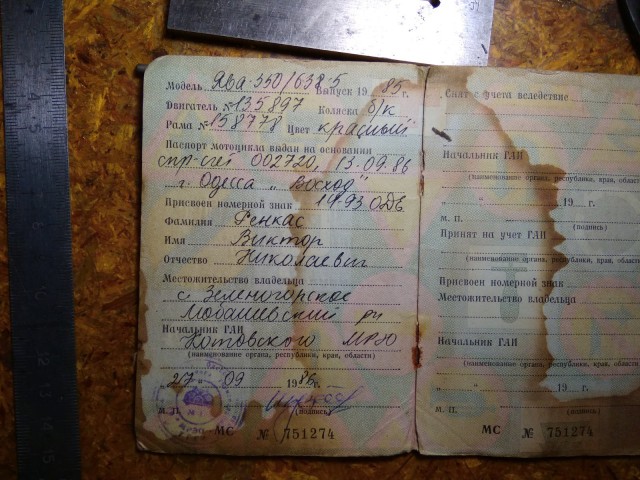 Модель Ява-350/638-5 Выпуск 1985 г.
Двигатель № 135897 Коляска б/к
Рама № 158778 Цвет красный
Паспорт мотоцикла выдан на основании
спр-счет 002720, 13.09.86
г. Одесса „Восход"
Присвоен номерной знак 1493 ОДВ
Фамилия Ренкас
Имя Виктор
Отчество Николаевич
Местожительство владельца
с. Зеленогорское
рн
Начальник ГАИ Котовского МРЭО
(наименование органа, республики, края, области)
„27" 09 1986 г.
М. П. (подпись)
МС № 751274
Снят с учета вследствие
Начальник ГАИ
(наименование органа, республики, края, области)
" " 19 г.
М. П. (подпись)
Принят на учет ГАИ
(наименование органа, республики, края, области)
Присвоен номерной знак
Местожительство владельца
Начальник ГАИ
(наименование органа, республики, края, области)
" " 19 г.
М. П. (подпись)
МС № 751274